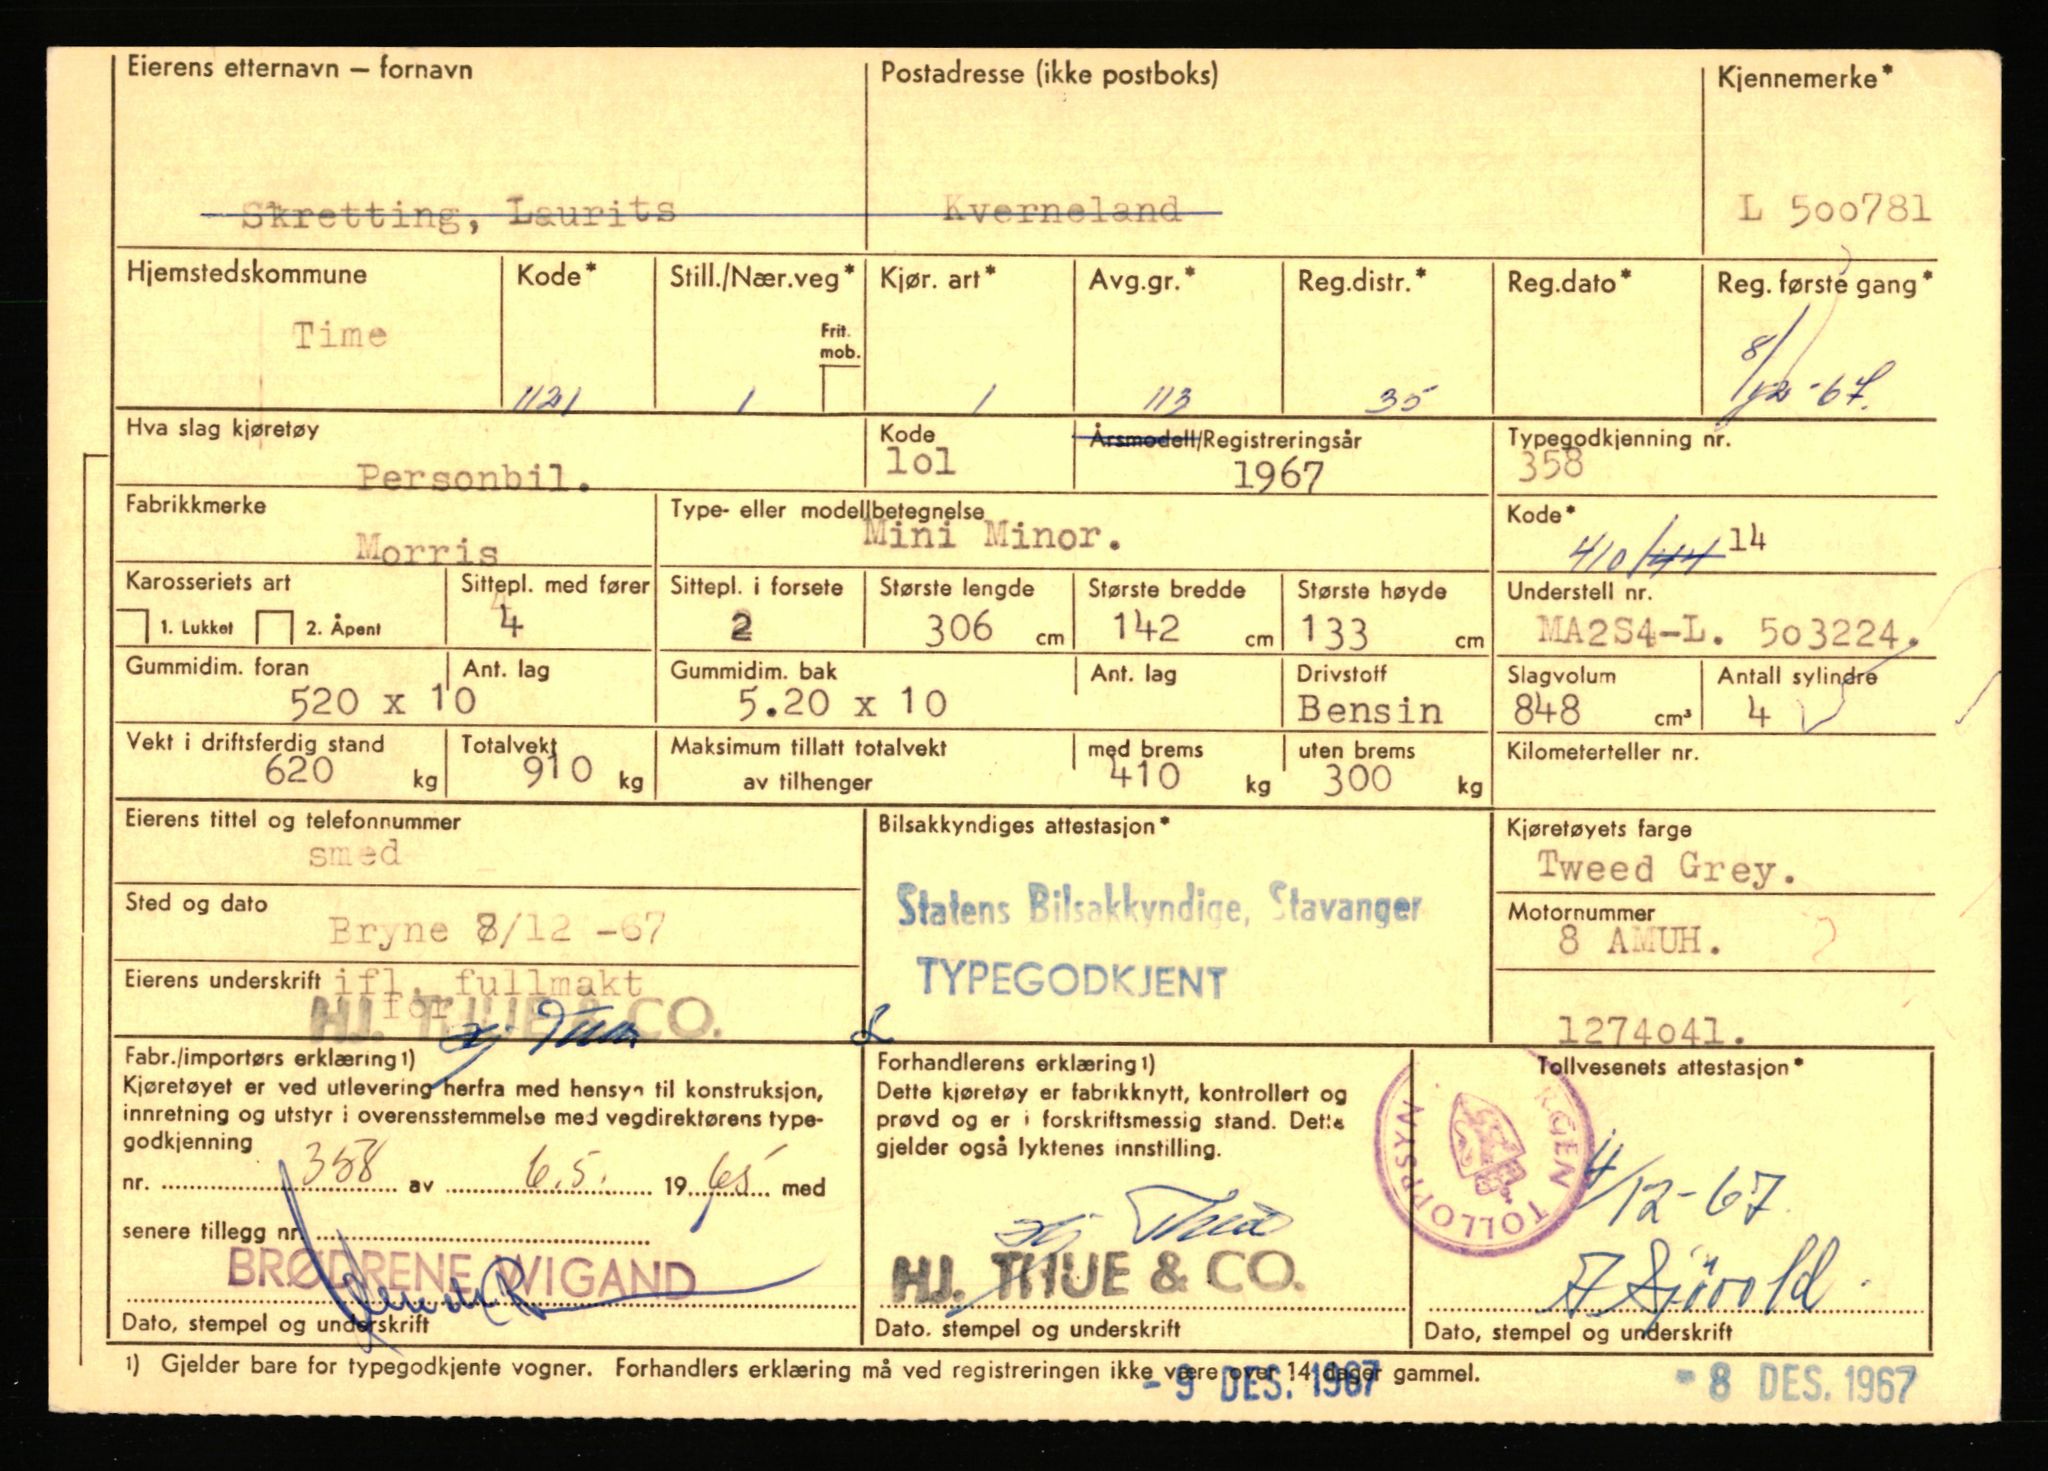 Eierens etternavn – fornavn
Postadresse (ikke postboks)
Kjennemerke*
Skretting, Laurits
Kverneland
L 500781
Hjemstedskommune
Kode*
Still./Nær.veg*
Kjør. art*
Avg.gr.*
Reg.distr.*
Reg.dato*
Reg. første gang*
Time
Frit.
mob.
1121
1
1
113
35
8/12-67.
Hva slag kjøretøy
Kode
Årsmodell/Registreringsår
Typegodkjenning nr.
Personbil.
lol
1967
358
Fabrikkmerke
Type- eller modellbetegnelse
Kode*
Morris
Mini Minor.
410/44 14
Karosseriets art
Sittepl. med fører
Sittepl. i forsete
Største lengde
Største bredde
Største høyde
Understell nr.
1. Lukket
2. Åpent
4
2
306 cm
142 cm
133 cm
MA2S4-L. 503224.
Gummidim. foran
Ant. lag
Gummidim. bak
Ant. lag
Drivstoff
Slagvolum
Antall sylindre
520 x 10
5.20 x 10
Bensin
848 cm³
4
Vekt i driftsferdig stand
Totalvekt
Maksimum tillatt totalvekt
med brems
uten brems
Kilometerteller nr.
620 kg
910 kg
av tilhenger
410 kg
300 kg
Eierens tittel og telefonnummer
Bilsakkyndiges attestasjon*
Kjøretøyets farge
smed
Tweed Grey.
Sted og dato
Statens Bilsakkyndige, Stavanger
Motornummer
Bryne 8/12 -67
8 AMUH.
Eierens underskrift
ifl. fullmakt
TYPEGODKJENT
for
HJ. THUE & CO.
Hj Thue
1274o41.
Fabr./importørs erklæring1)
Kjøretøyet er ved utlevering herfra med hensyn til konstruksjon,
innretning og utstyr i overensstemmelse med vegdirektørens type-
godkjenning
nr. 358 av 6.5. 1965 med
senere tillegg nr.
BRØDRENE WIGAND
Dato, stempel og underskrift
Forhandlerens erklæring1)
Dette kjøretøy er fabrikknytt, kontrollert og
prøvd og er i forskriftsmessig stand. Dette
gjelder også lyktenes innstilling.
Hj Thue
HJ. THUE & CO.
Dato. stempel og underskrift
Tollvesenets attestasjon*
RGEN TOLLOPPSYN
4/12-67
A Sjøvold
Dato, stempel og underskrift
1) Gjelder bare for typegodkjente vogner. Forhandlers erklæring må ved registreringen ikke være over 14 dager gammel.
- 9 DES. 1967
- 8 DES. 1967